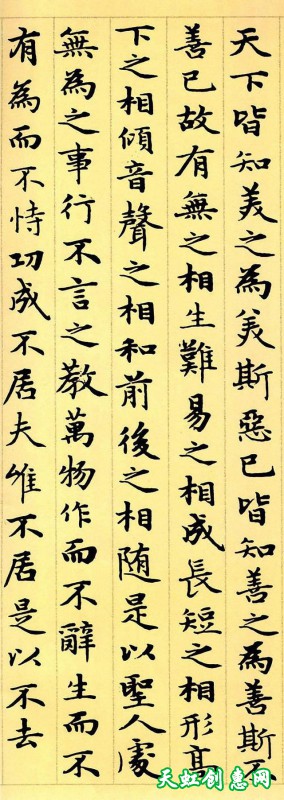 天下皆知美之為美斯惡已皆知善之為善斯不
善已故有無之相生難易之相成長短之相形高
下之相傾音聲之相和前後之相随是以聖人處
無為之事行不言之教萬物作而不辭生而不
有為而不恃功成不居夫唯不居是以不去
天虹创惠网